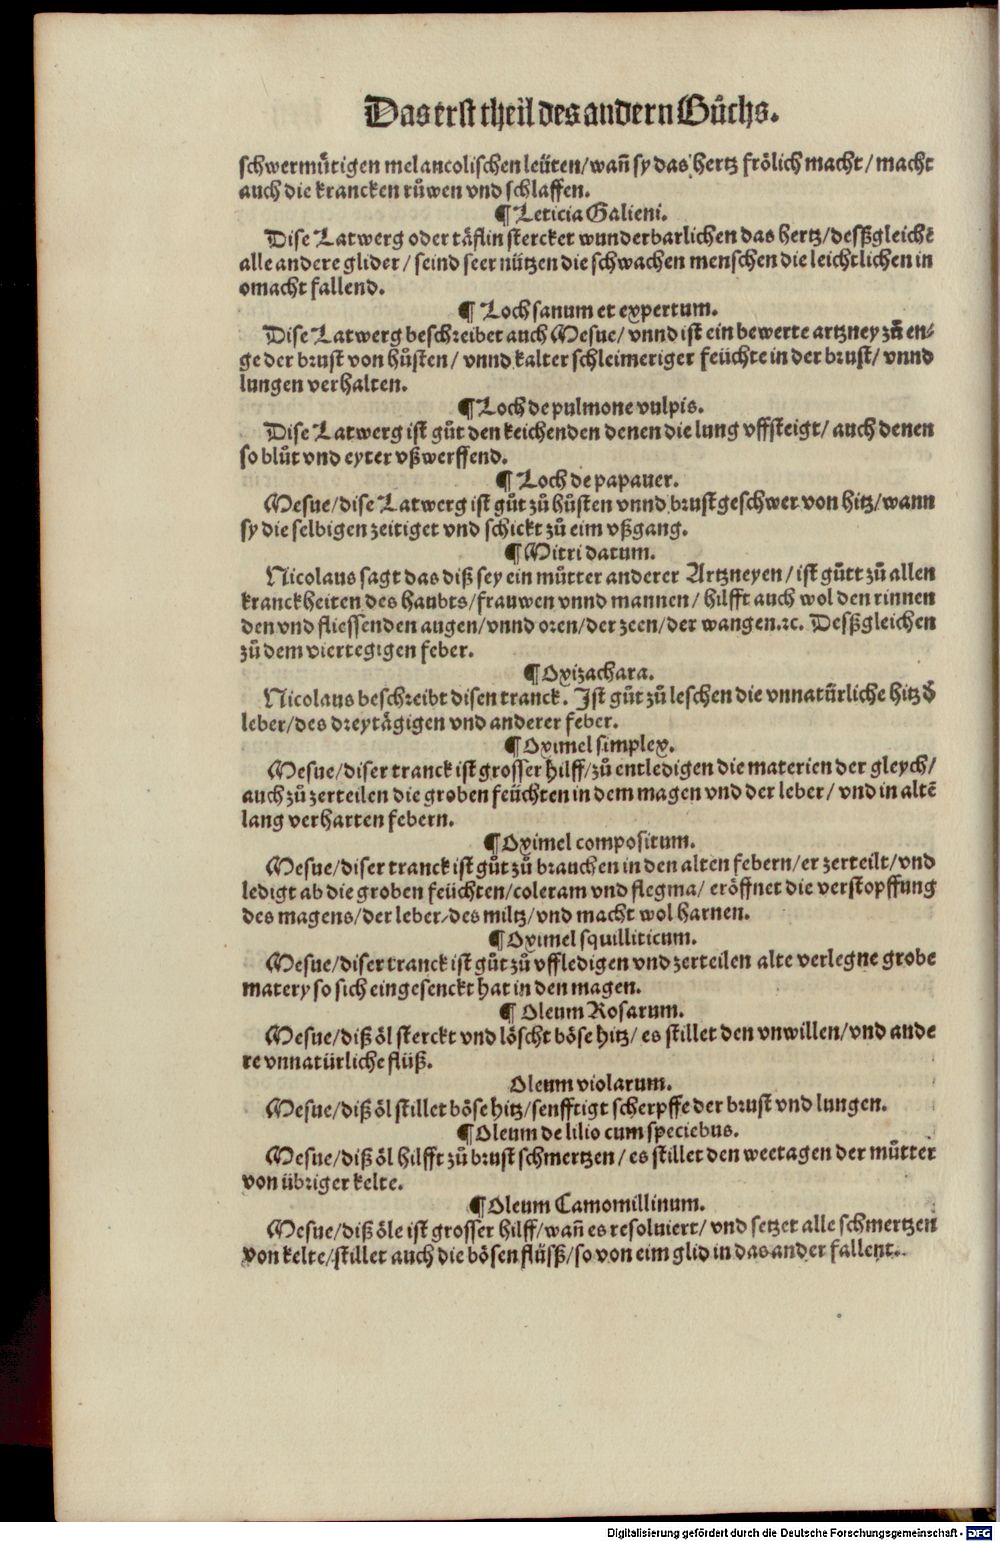 Das erst theil des andern Bůchs.
schwermůtigen melancolischen leüten/wañ sy das hertz frölich macht/macht
auch die krancken růwen vnd schlaffen.
¶ Leticia Galieni.
Dise Latwerg oder täflin stercket wunderbarlichen das hertz/deßgleichē
alle andere glider/seind seer nützen die schwachen menschen die leichtlichen in
omacht fallend.
¶ Loch sanum et expertum.
Dise Latwerg beschreibet auch Mesue/vnnd ist ein bewerte artzney zů en⸗
ge der brust von hůsten/vnnd kalter schleimeriger feüchte in der brust/vnnd
lungen verhalten.
¶ Loch de pulmone vulpis.
Dise Latwerg ist gůt den keichenden denen die lung vffsteigt/auch denen
so blůt vnd eyter vßwerffend.
¶ Loch de papauer.
Mesue/dise Latwerg ist gůt zů hůsten vnnd brustgeschwer von hitz/wann
sy die selbigen zeitiget vnd schickt zů eim vßgang.
¶ Mitridatum.
Nicolaus sagt das diß sey ein můtter anderer Artzneyen/ist gůtt zů allen
kranckheiten des haubts/frauwen vnnd mannen/hilfft auch wol den rinnen
den vnd fliessenden augen/vnnd oren/der zeen/der wangen.ꝛc. Deßgleichen
zů dem viertegigen feber.
¶ Oxizachara.
Nicolaus beschreibt disen tranck. Ist gůt zů leschen die vnnatürliche hitz d̕
leber/des dreytägigen vnd anderer feber.
¶ Oximel simplex.
Mesue/diser tranck ist grosser hilff/zů entledigen die materien der gleych/
auch zů zerteilen die groben feüchten in dem magen vnd der leber/vnd in altē
lang verharten febern.
¶ Oximel compositum.
Mesue/diser tranck ist gůt zů brauchen in den alten febern/er zerteilt/vnd
ledigt ab die groben feüchten/coleram vnd flegma/eröffnet die verstopffung
des magens/der leber/des miltz/vnd macht wol harnen.
¶ Oximel squilliticum.
Mesue/diser tranck ist gůt zů vffledigen vnd zerteilen alte verlegne grobe
matery so sich eingesenckt hat in den magen.
¶ Oleum Rosarum.
Mesue/diß öl sterckt vnd löscht böse hitz/es stillet den vnwillen/vnd ande
re vnnatürliche flüß.
Oleum violarum.
Mesue/diß öl stillet böse hitz/senfftigt scherpffe der brust vnd lungen.
¶ Oleum de lilio cum speciebus.
Mesue/diß öl hilfft zů brust schmertzen/es stillet den weetagen der můtter
von übriger kelte.
¶ Oleum Camomillinum.
Mesue/diß öle ist grosser hilff/wañ es resoluiert/vnd setzet alle schmertzen
von kelte/stillet auch die bösen flüsß/so von eim glid in das ander fallent.
Digitalisierung gefördert durch die Deutsche Forschungsgemeinschaft - DFG